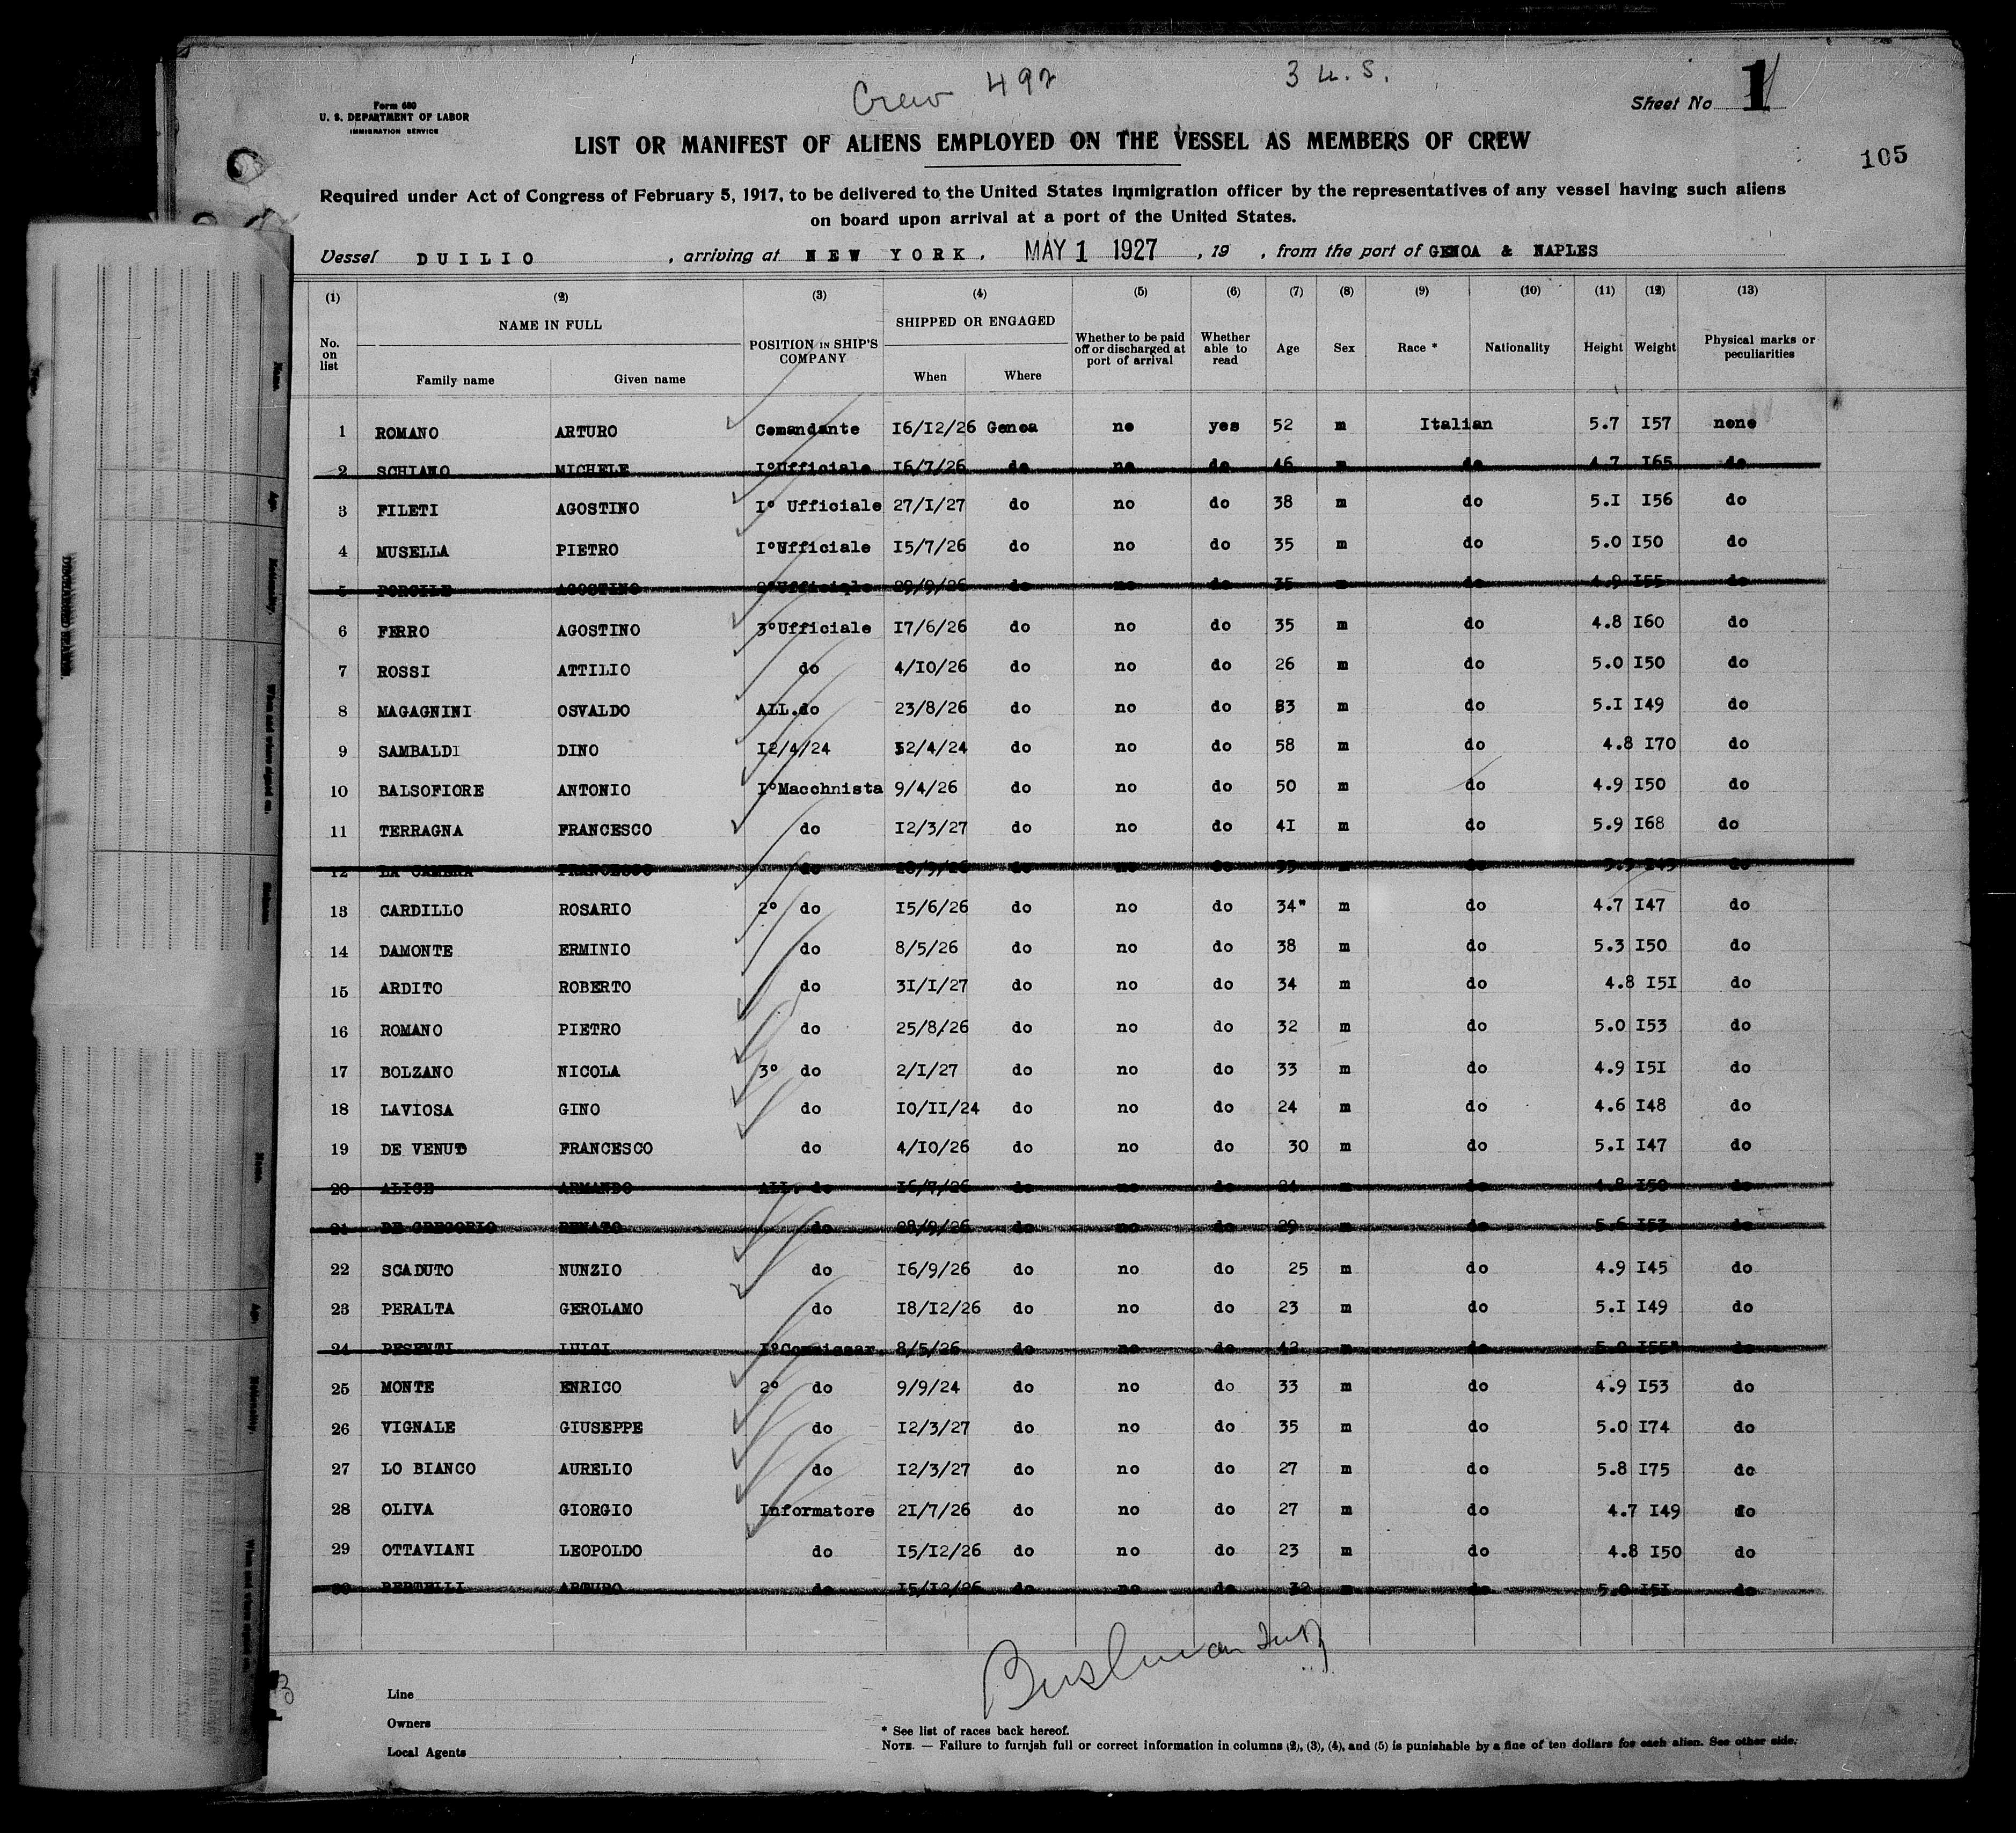 Crew 492 3 U.S.
Form 680
U. S. DEPARTMENT OF LABOR
IMMIGRATION SERVICE
Sheet No. 1
LIST OR MANIFEST OF ALIENS EMPLOYED ON THE VESSEL AS MEMBERS OF CREW
105
Required under Act of Congress of February 5, 1917, to be delivered to the United States immigration officer by the representatives of any vessel having such aliens
on board upon arrival at a port of the United States.
Vessel DUILIO , arriving at NEW YORK. MAY 1 1927 , 19 , from the port of GENOA & NAPLES
(1) (2) (3) (4) (5) (6) (7) (8) (9) (10) (11) (12) (13)
No. on list NAME IN FULL Family name Given name POSITION IN SHIP'S COMPANY SHIPPED OR ENGAGED When Where Whether to be paid off or discharged at port of arrival Whether able to read Age Sex Race * Nationality Height Weight Physical marks or peculiarities
1 ROMANO ARTURO Comandante I6/I2/26 Genoa no yes 52 m Italian 5.7 I57 none
2 SCHIANO MICHELE I°Ufficiale I6/7/26 do no do 46 m do 4.7 I65 do
3 FILETI AGOSTINO I° Ufficiale 27/I/27 do no do 38 m do 5.I I56 do
4 MUSELLA PIETRO I°Ufficiale I5/7/26 do no do 35 m do 5.0 I50 do
5 PORCILE AGOSTINO 2°Ufficiale 29/9/26 do no do 35 m do 4.9 I55 do
6 FERRO AGOSTINO 3°Ufficiale I7/6/26 do no do 35 m do 4.8 I60 do
7 ROSSI ATTILIO do 4/IO/26 do no do 26 m do 5.0 I50 do
8 MAGAGNINI OSVALDO ALL.do 23/8/26 do no do 33 m do 5.I I49 do
9 SAMBALDI DINO I2/4/24 I2/4/24 do no do 58 m do 4.8 I70 do
10 BALSOFIORE ANTONIO I°Macchnista 9/4/26 do no do 50 m do 4.9 I50 do
11 TERRAGNA FRANCESCO do I2/3/27 do no do 4I m do 5.9 I68 do
12 LA CAMERA FRANCESCO do do no do m do do
13 CARDILLO ROSARIO 2° do I5/6/26 do no do 34" m do 4.7 I47 do
14 DAMONTE ERMINIO do 8/5/26 do no do 38 m do 5.3 I50 do
15 ARDITO ROBERTO do 3I/I/27 do no do 34 m do 4.8 I5I do
16 ROMANO PIETRO do 25/8/26 do no do 32 m do 5.0 I53 do
17 BOLZANO NICOLA 3° do 2/I/27 do no do 33 m do 4.9 I5I do
18 LAVIOSA GINO do IO/II/24 do no do 24 m do 4.6 I48 do
19 DE VENUTO FRANCESCO do 4/IO/26 do no do 30 m do 5.I I47 do
20 ALICE ARMANDO ALL. do I6/7/26 do no do 24 m do 4.8 I50 do
21 DE GREGORIO RENATO do 28/9/26 do no do 29 m do 5.6 I53 do
22 SCADUTO NUNZIO do I6/9/26 do no do 25 m do 4.9 I45 do
23 PERALTA GEROLAMO do I8/I2/26 do no do 23 m do 5.I I49 do
24 PESENTI LUIGI I°Commissar. 8/5/26 do no do 42 m do 5.0 I55" do
25 MONTE ENRICO 2° do 9/9/24 do no do 33 m do 4.9 I53 do
26 VIGNALE GIUSEPPE do I2/3/27 do no do 35 m do 5.0 I74 do
27 LO BIANCO AURELIO do I2/3/27 do no do 27 m do 5.8 I75 do
28 OLIVA GIORGIO Informatore 2I/7/26 do no do 27 m do 4.7 I49 do
29 OTTAVIANI LEOPOLDO do I5/I2/26 do no do 23 m do 4.8 I50 do
30 BERTELLI ARTURO do I5/I2/26 do no do 32 m do 5.0 I5I do
Line
Owners
Local Agents
* See list of races back hereof.
NOTE. — Failure to furnish full or correct information in columns (2), (3), (4), and (5) is punishable by a fine of ten dollars for each alien. See other side.